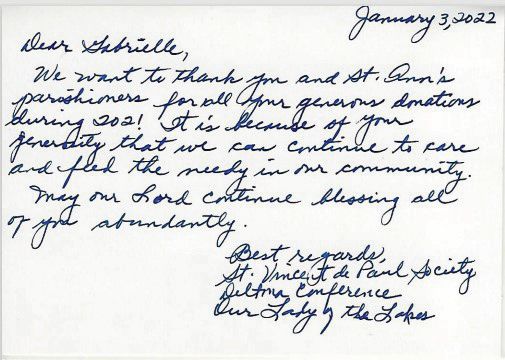 January 3, 2022
Dear Gabrielle,
We want to thank you and St. Ann's
parishioners for all your generous donations
during 2021! It is because of your
generosity that we can continue to care
and feed the needy in our community.
May our Lord continue blessing all
of you abundantly.
Best regards,
St. Vincent de Paul Society
Deltona Conference
Our Lady of the Lakes